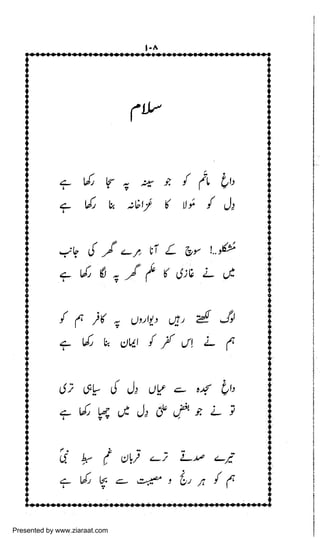 ۱۰۸
سلام
داغِ ماتم کو جو سینہ پہ سجا رکھا ہے
دِل کو مَولا کا عَزاخانہ بنا رکھا ہے
مُشکلو..! سوچ کے آنا مِرے گھر کی جانب
میں نے غازی کا علم گھر پہ لگا رکھا ہے
لوگ لکھتے رہیں دیواروں پہ کافر ہم کو
ہم نے اِس کفر کو ایماں بنا رکھا ہے
داغِ سجدہ سے عیاں دِل کی سیاہی تری
تو نے جو بغضِ علی دِل میں چھپا رکھا ہے
تیرے صدقے ترے قرباں غمِ سبطِ نبیؐ
ہم کو ہر رنج و مصیبت سے بچا رکھا ہے
Presented by www.ziaraat.com